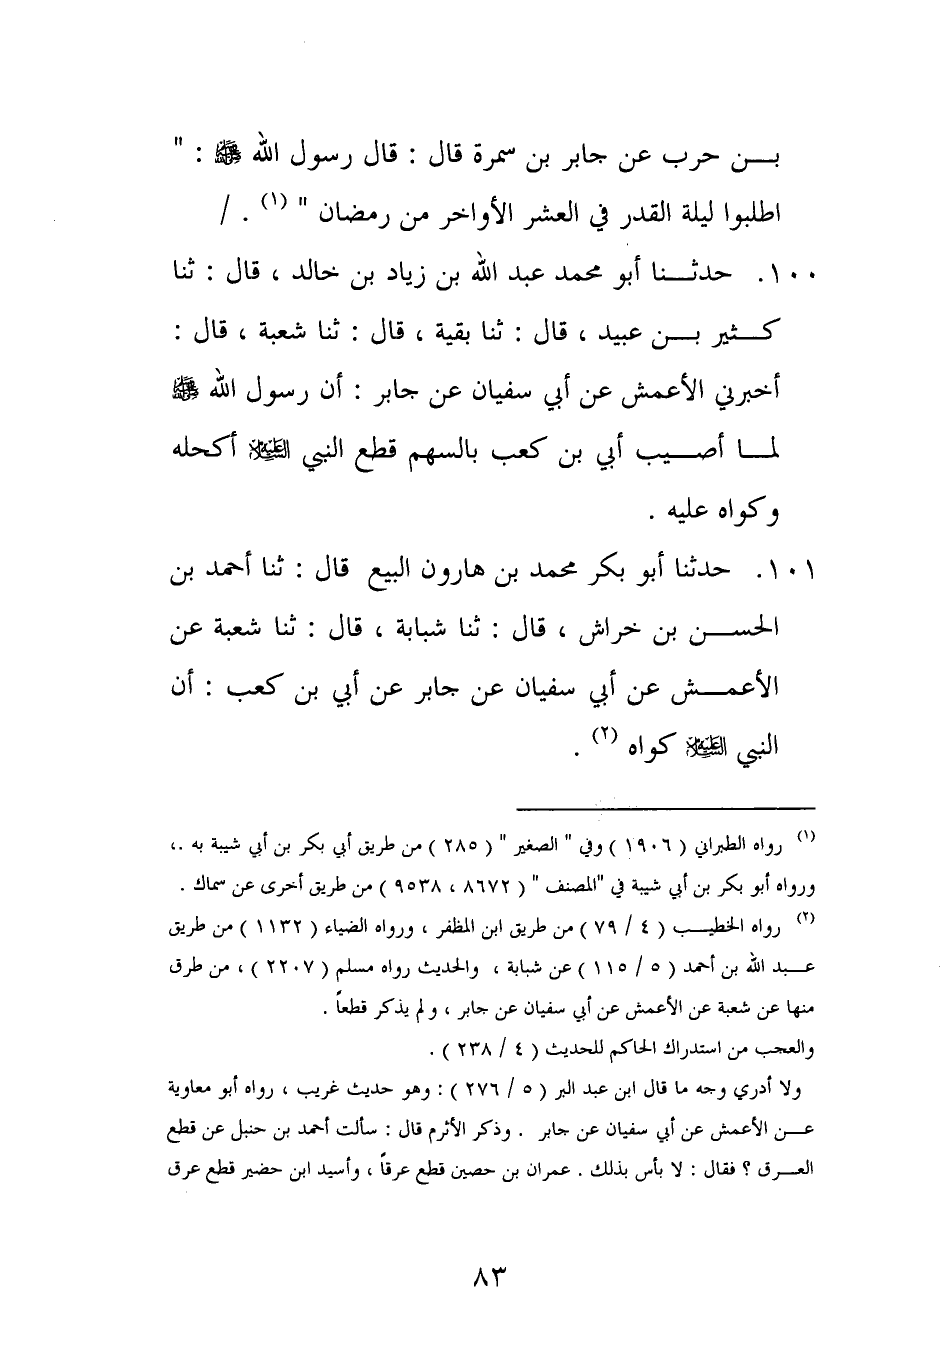 بـــن حرب عن جابر بن سمرة قال : قال رسول الله ﷺ : "
اطلبوا ليلة القدر في العشر الأواخر من رمضان " (١) . /
١٠٠. حدثـــنا أبو محمد عبد الله بن زياد بن خالد ، قال : ثنا
كـــثير بـــن عبيد ، قال : ثنا بقية ، قال : ثنا شعبة ، قال :
أخبرني الأعمش عن أبي سفيان عن جابر : أن رسول الله ﷺ
لمـــا أصـــيب أبي بن كعب بالسهم قطع النبي عليه السلام أكحله
وكواه عليه .
١٠١. حدثنا أبو بكر محمد بن هارون البيع قال : ثنا أحمد بن
الحســـن بن خراش ، قال : ثنا شبابة ، قال : ثنا شعبة عن
الأعمـــش عن أبي سفيان عن جابر عن أبي بن كعب : أن
النبي عليه السلام كواه (٢) .
(١) رواه الطبراني ( ١٩٠٦ ) وفي " الصغير " ( ٢٨٥ ) من طريق أبي بكر بن أبي شيبة به .،
ورواه أبو بكر بن أبي شيبة في "المصنف " ( ٨٦٧٢ ، ٩٥٣٨ ) من طريق أخرى عن سماك .
(٢) رواه الخطيـــب ( ٤ / ٧٩ ) من طريق ابن المظفر ، ورواه الضياء ( ١١٣٢ ) من طريق
عـــبد الله بن أحمد ( ٥ / ١١٥ ) عن شبابة ، والحديث رواه مسلم ( ٢٢٠٧ ) ، من طرق
منها عن شعبة عن الأعمش عن أبي سفيان عن جابر ، ولم يذكر قطعاً .
والعجب من استدراك الحاكم للحديث ( ٤ / ٢٣٨ ) .
ولا أدري وجه ما قال ابن عبد البر ( ٥ / ٢٧٦ ) : وهو حديث غريب ، رواه أبو معاوية
عـــن الأعمش عن أبي سفيان عن جابر . وذكر الأثرم قال : سألت أحمد بن حنبل عن قطع
العـــرق ؟ فقال : لا بأس بذلك . عمران بن حصين قطع عرقاً ، وأسيد ابن حضير قطع عرق
٨٣